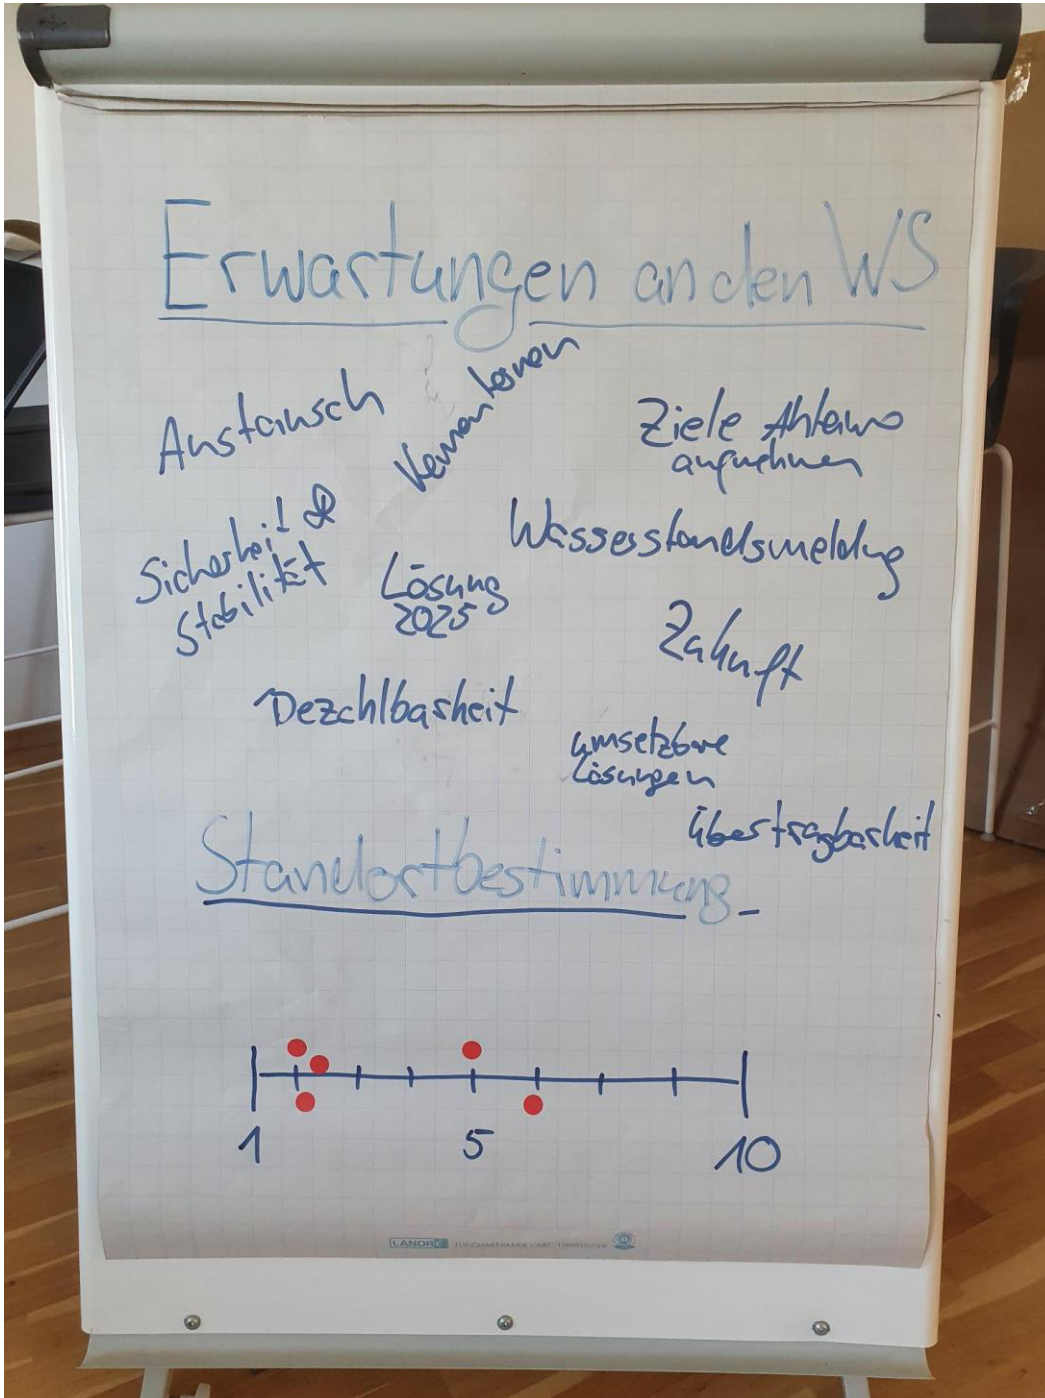 Erwartungen an den WS
Austausch
Kennenlernen
Ziele
aufnehmen
Sicherheit &
Stabilität
Lösung
2025
Wasserstandsmeldung
Zukunft
Bezahlbarkeit
umsetzbare
Lösungen
Übertragbarkeit
Standortbestimmung
1 5 10
LANDRÉ